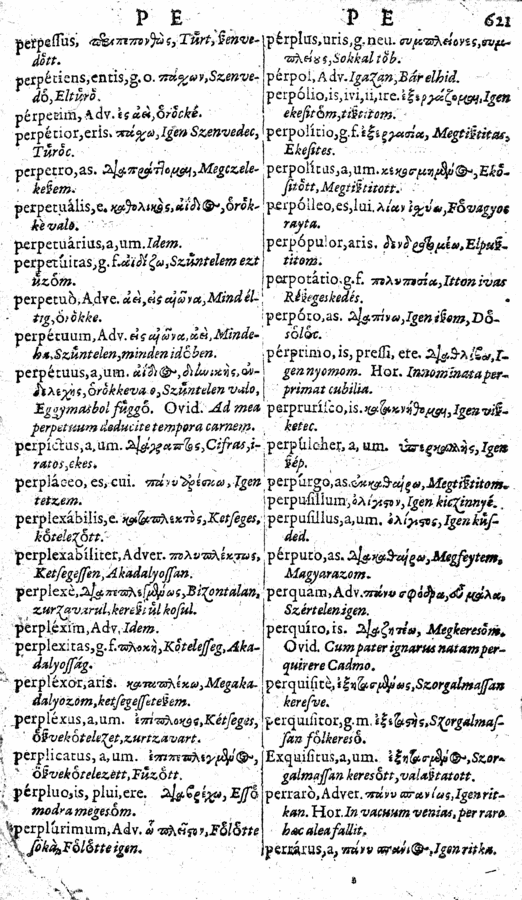 P E
P E
621
perpessus, πεπονθὼς, Tűrt, ßenve-
dőtt.
perpétiens, entis, g. o. πάχων, Szenve-
dő, Eltűrő.
pérpetim, Adv. ἐς ἀεὶ, őrőcké.
perpétior, eris. πάχω, Igen Szenvedec,
Tűrőc.
perpetro, as. Megczele-
keßem.
perpetuális, e. καθολικὸς, őrők-
kè valo.
perpetuárius, a, um. Idem.
perpetúitas, g. f. Szűntelem ezt
űzőm.
perpetuò, Adve. ἀεὶ, εἰς αἰῶνα, Mind él-
tig, őrőkke.
perpétuum, Adv. εἰς αἰῶνα, ἀεὶ, Minde-
ha, Szűntelen, minden időben.
perpétuus, a, um. őrőkkeva o, Szűntelen valo,
Eggymasbol fűggő. Ovid. Ad mea
perpetuum deducite tempora carmen.
perpíctus, a, um. Cifras, i-
ratos, ekes.
perpláceo, es, cui. Igen
tetzem.
perplexábilis, e. Ketseges,
kőtelezőtt.
perplexabíliter, Adver.
Ketsegessen, Akadalyossan.
perplexè, Bizontalan,
zurzavarul,
perpléxim, Adv. Idem.
perplexitas, g. f. πλοκὴ, Kőtelesseg, Aka-
dalyosság.
perpléxor, aris. καταπλέκω, Megaka-
dalyozom, ketsegesseteßem.
perpléxus, a, um. ἐπίπλοκος, Kétseges,
őßvekőtelezet, zurtzavart.
perplicatus, a, um.
őßvekőtelezett, Fűzőtt.
pérpluo, is, plui, ere. Essó
modra megesőm.
perplúrimum, Adv. ὡ πλεῖστον, Főlőtte
sőkā, Főlőtte igen.
pérplus, uris, g. neu. συμπλείονες, συμ-
πλείους, Sokkal tőb.
pérpol, Adv. Igazan, Bár elhid.
perpólio, is, ivi, ii, ire. ἐξεργάζομαι, Igen
ekesitőm, tißtitom.
perpolítio, g. f. ἐξεργασία, Megtißtitas,
Ekesites.
perpolítus, a, um. Ekő-
sitőtt, Megtißtitott.
perpólleo, es, lui. λίαν ἰσχύω, Fő vagyoc
rayta.
perpópulor, aris. Elpuß-
titom.
perpotátio. g. f. πολυποσία, Itton ivas
Réßegeskedés.
perpóto, as. Igen ißom, Dő-
sőlőc.
pérprimo, is, pressi, ete. I-
gen nyomom. Hor. Innominata per-
primat cubilia.
perpruríſco, is. Igen viß-
ketec.
perpúlcher, a, um. Igen
ßép.
perpúrgo, as. Megtißtitom.
perpusíllum, ὀλίγιστον, Igen kiczinnyé.
perpusíllus, a, um. ὀλίγιστος, Igen kűs-
ded.
pérputo, as. Megfeytem,
Magyarazom.
perquam, Adv. πάνυ σφόδρα, εὖ μάλα,
Szértelen igen.
perquíro, is. Megkeresőm.
Ovid. Cum pater ignarus natam per-
quirere Cadmo.
perquisitè, Szorgalmassan
keresve.
perquisítor, g. m. Szorgalmas-
san főlkereső.
Exquisítus, a, um. Szor-
galmassan keresőtt, valaßtatott.
perrarò, Adver. πάνυ σπανίως, Igen rit-
kan. Hor. In vacuum venias, per raro
hac alea fallit.
perrárus, a, Igen ritka.